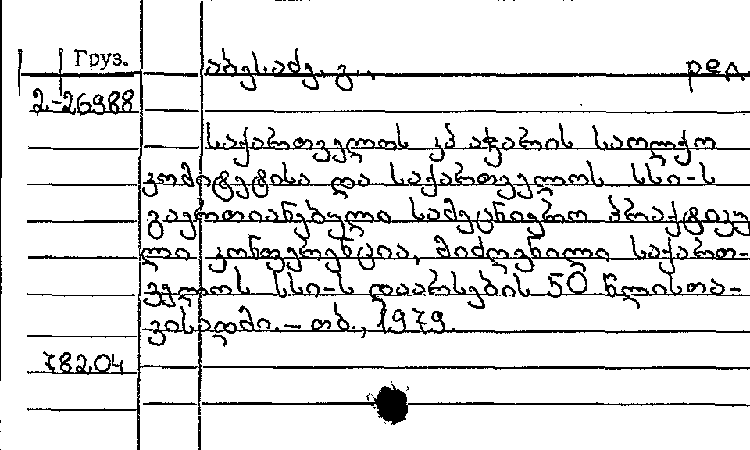 Груз.
აბესაძე. გ., ред.
2-26988
საქართველოს კპ აჭარის საოლქო
კომიტეტისა და საქართველოს სსი-ს
გაერთიანებული სამეცნიერო პრაქტიკუ
ლი კონფერენცია, მიძღვნილი საქართ-
ველოს სსი-ს დაარსების 50 წლისთა-
ვისადმი. - თბ., 1979.
782.04